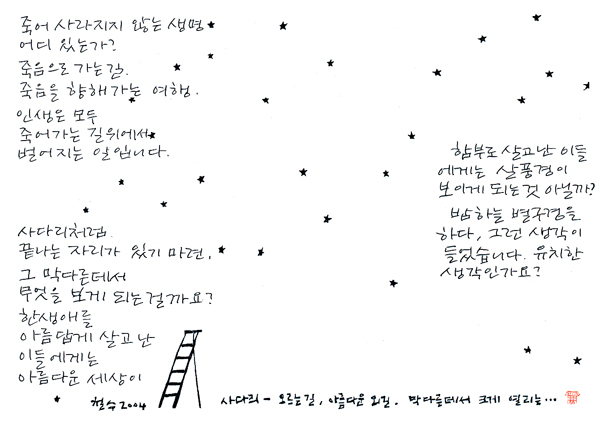 죽어 사라지지 않는 생명
어디 있는가?
죽음으로 가는 길.
죽음을 향해가는 여행.
인생은 모두
죽어가는 길위에서
벌어지는 일입니다.
사다리처럼.
끝나는 자리가 있기 마련.
그 막다른데서
무엇을 보게 되는걸까요?
한생애를
아름답게 살고 난
이들에게는
아름다운 세상이
함부로 살고 난 이들
에게는 살풍경이
보이게 되는것 아닐까?
밤하늘 별구경을
하다, 그런 생각이
들었습니다. 유치한
생각인가요?
철수 2004
사다리 - 오르는길, 아름다운 외길. 막다른데서 크게 열리는…